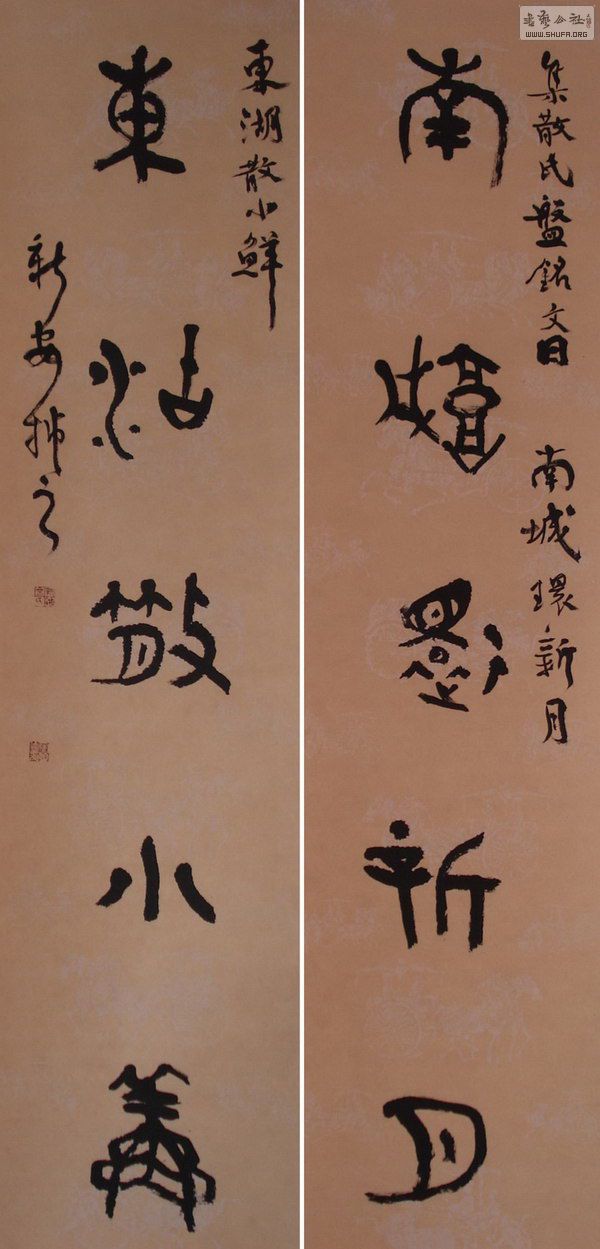 書藝公社
WWW.SHUFA.ORG
集散氏盤銘文曰 南城環新月
南城環新月
東湖散小鮮
東湖散小鮮
新安之